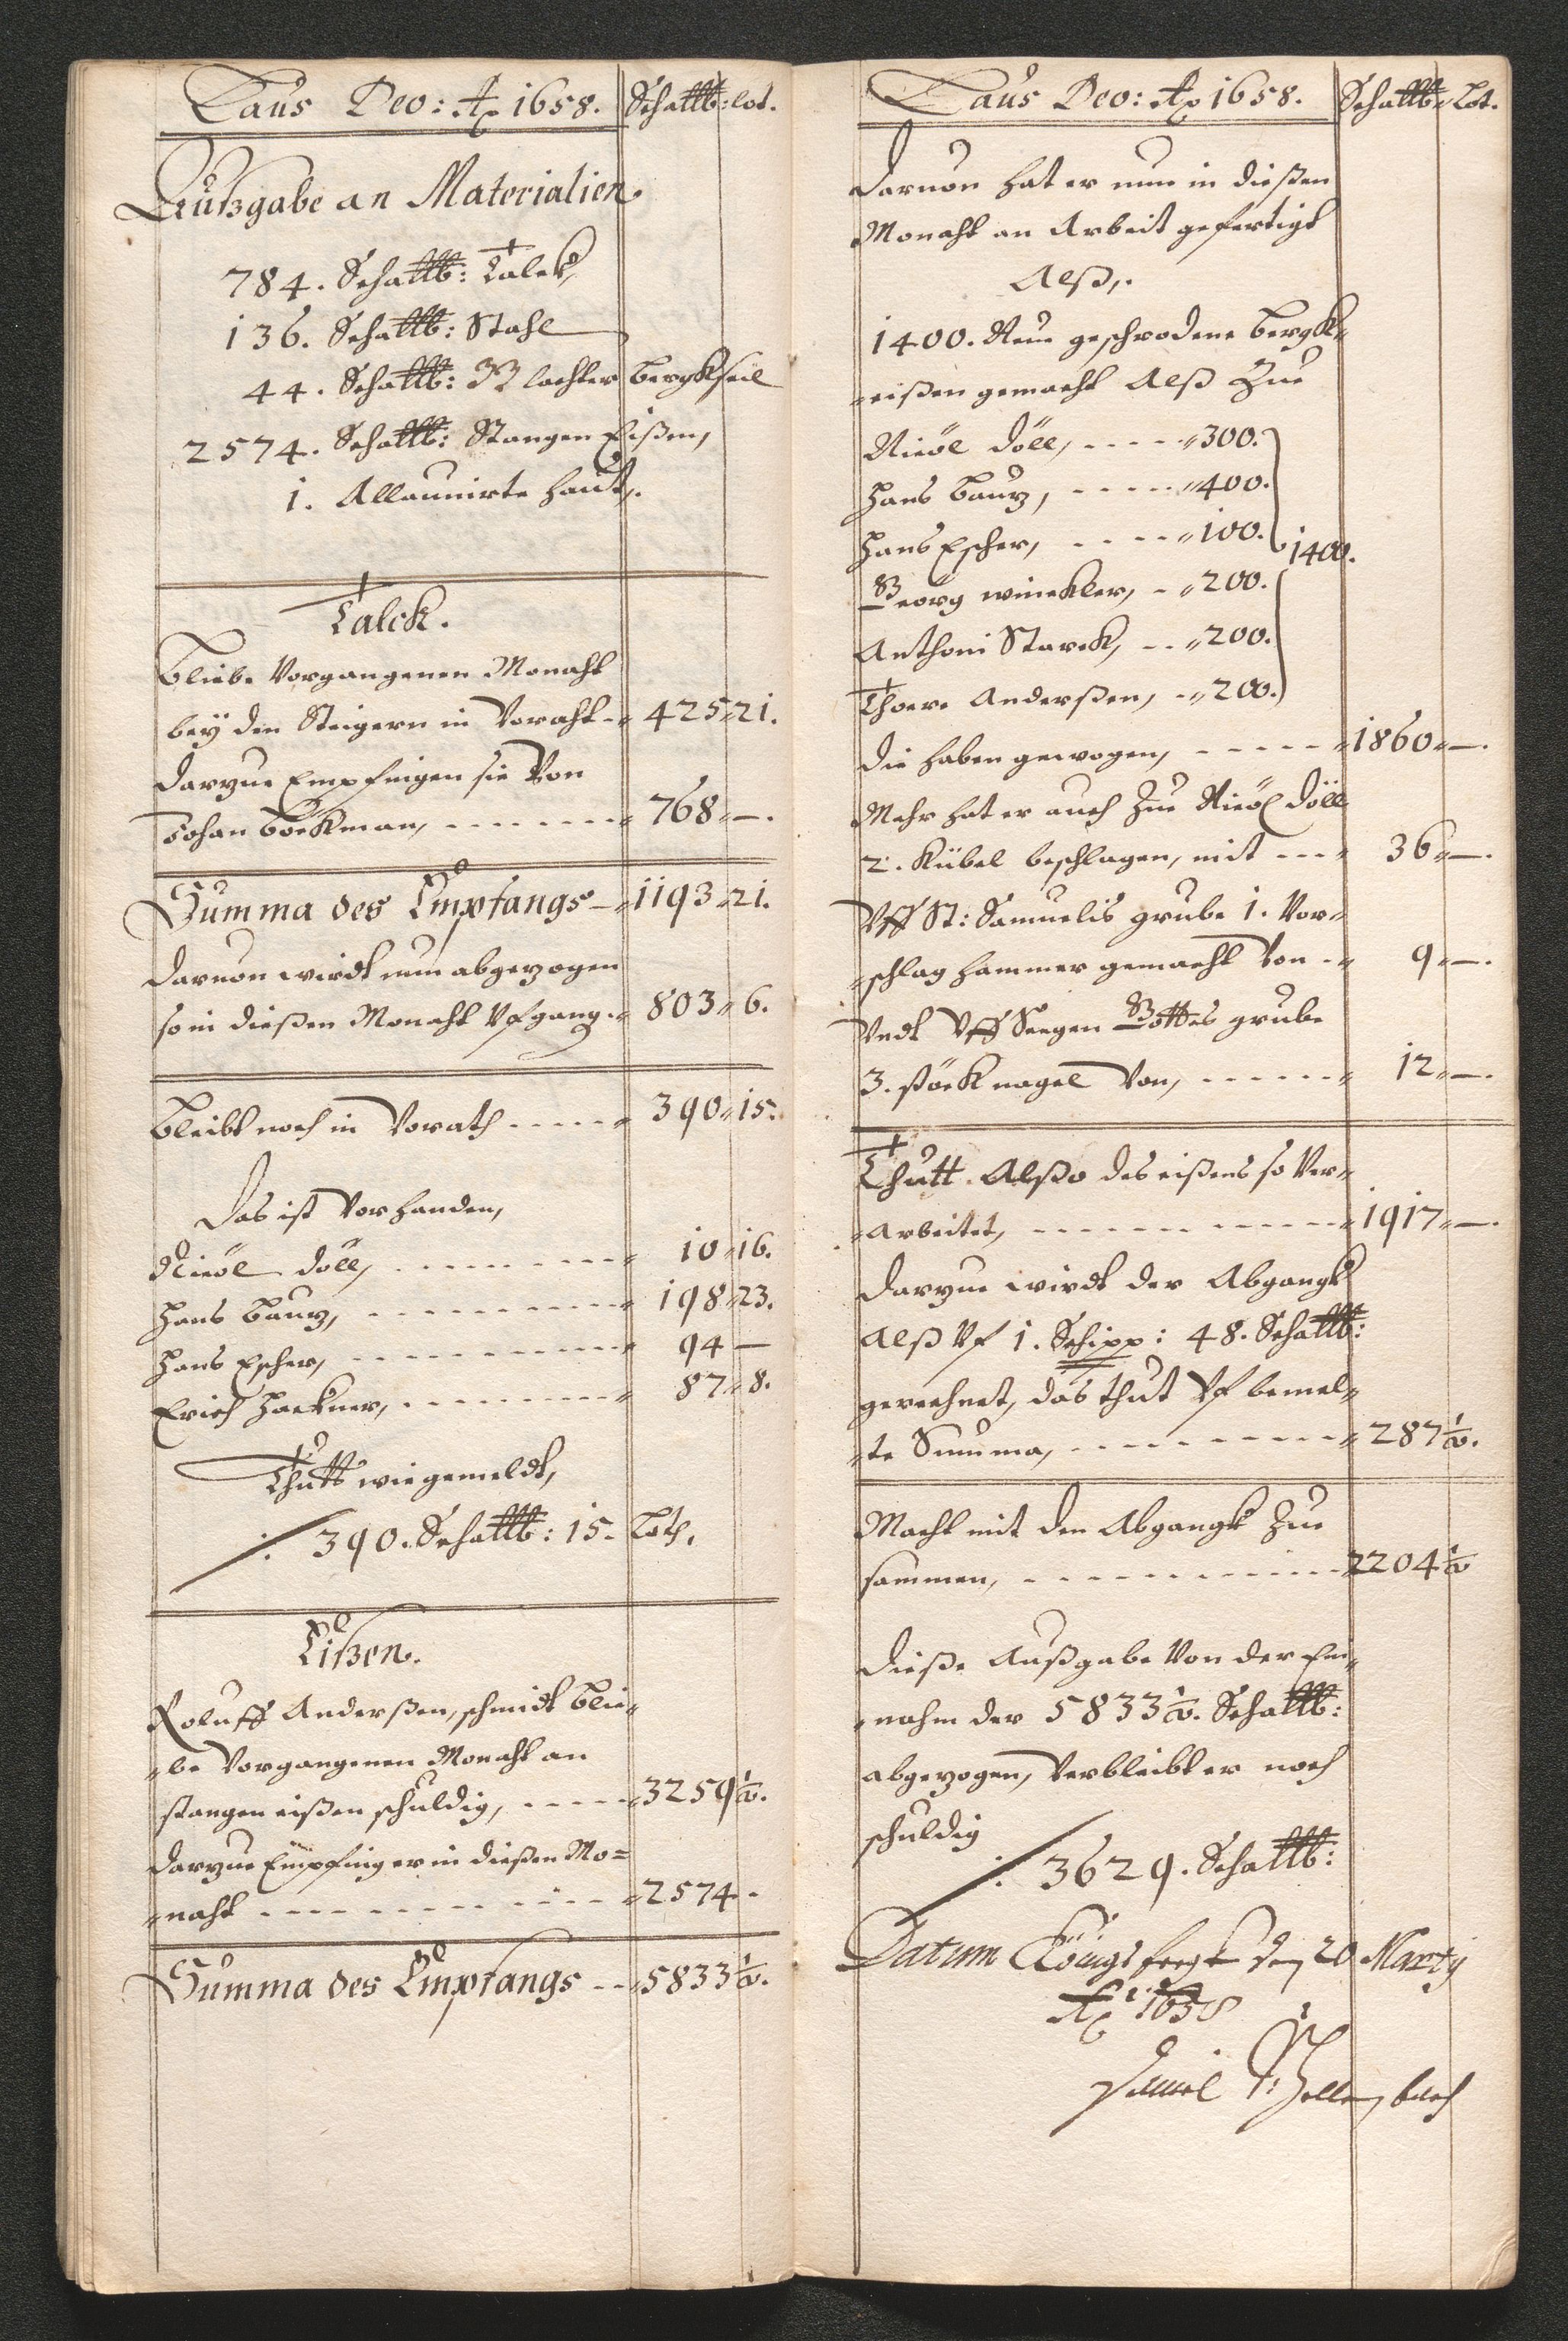 Laus Deo: Ao 1658. Schallb: lot.
Außgabe an Materialien.
784. Schallb: Talck,
136. Schallb: Stahl
44. Schallb: 33 lachter bergkseil
2574. Schallb: Stangen Eißen,
1. Allaunirte haut.
Talck.
Bliebe Vorgangenen Monaht
beÿ den Steigern in Vorraht -- 425 " 21.
darzue Empfingen sie Von
Johan Böckman, ------- 768 " —.
Summa des Empfangs — 1193 " 21.
daruon wirdt nun abgezogen
so in dießen Monaht Vfgang. " 803 " 6.
Bleibt noch in Vorath ----- " 390 " 15.
Das ist Vorhanden,
Nicöl Döll, -------- " 10 " 16.
Hans Bauz, -------- " 198 " 23.
Hans Escher, -------- " 94 —
Erich Hackner, -------- " 87 " 8.
Thutt wie gemeldt,
⁒ 390. Schallb: 15. Loth.
Eißen.
Roluff Anderßen, schmidt blie"
"be Vorgangenen Monaht an
stangen eißen schuldig, ----- " 3259 ½.
darzue Empfing er in dießen Mo=
"naht ------------ " 2574 -
Summa des Empfangs -- 5833 ½.
Laus Deo: Ao 1658. Schallb: Lot.
Daruon hat er nun in dießen
Monaht an Arbeit gefertigt
Alß,
1400. Neue geschrodene bergk"
"eißen gemacht Alß Zue
Nicöl Döll, ---- " 300.
Hans Bauz, ---- " 400.
Hans Escher, ---- " 100. 1400.
Georg winckler, - " 200.
Anthoni Starck, -- " 200.
Thore Anderßen, -- " 200.
die haben gewogen, ----- " 1860 " —.
Mehr hat er auch Zue Nicöl Döll
2. Kübel beschlagen, mit --- " 36 " —.
Vff St: Samuelis grube 1. Vor"
"schlag hammer gemacht Von -- 9 " —.
Vndt Vff Seegen Gottes grube
3. störk nagel Von, ------ " 12 " —.
Thutt. Alßo des eißens so Ver"
"arbeitet, ---------- " 1917 " —.
darzue wirdt der Abgangk
Alß Vf 1. Schipp: 48. Schallb:
gerechnet, das thut Vf bemel"
"te Summa, --------- " 287 ½.
Macht mit den Abgangk Zue
sammen, ----------- " 2204 ½
Dieße Außgabe Von der Ein"
"nahm der 5833 ½. Schallb:
abgezogen, Verbleibt er noch
schuldig
⁒ 3629. Schallb:
Datum Königsbergk den 20 Martij
Ao 1658